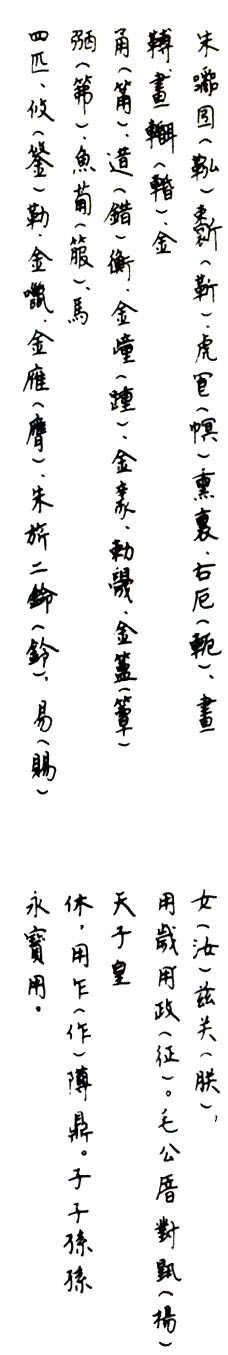 朱 (鞃) (靳)、虎冟(幎)熏裏、右厄(軛)、畫
畫、金
甬(筩)、造(錯)衡、金(踵)、金豙、金(簟)
弼(笰)、魚葡(箙)、馬
四匹、攸(鋚)勒、金、金雁(膺)、朱旂二(鈴)、易(賜)
女(汝)茲关(朕),
用歲用政(征)。毛公厝對(揚)
天子皇
休,用乍(作)鼎。子子孫孫
永寶用。